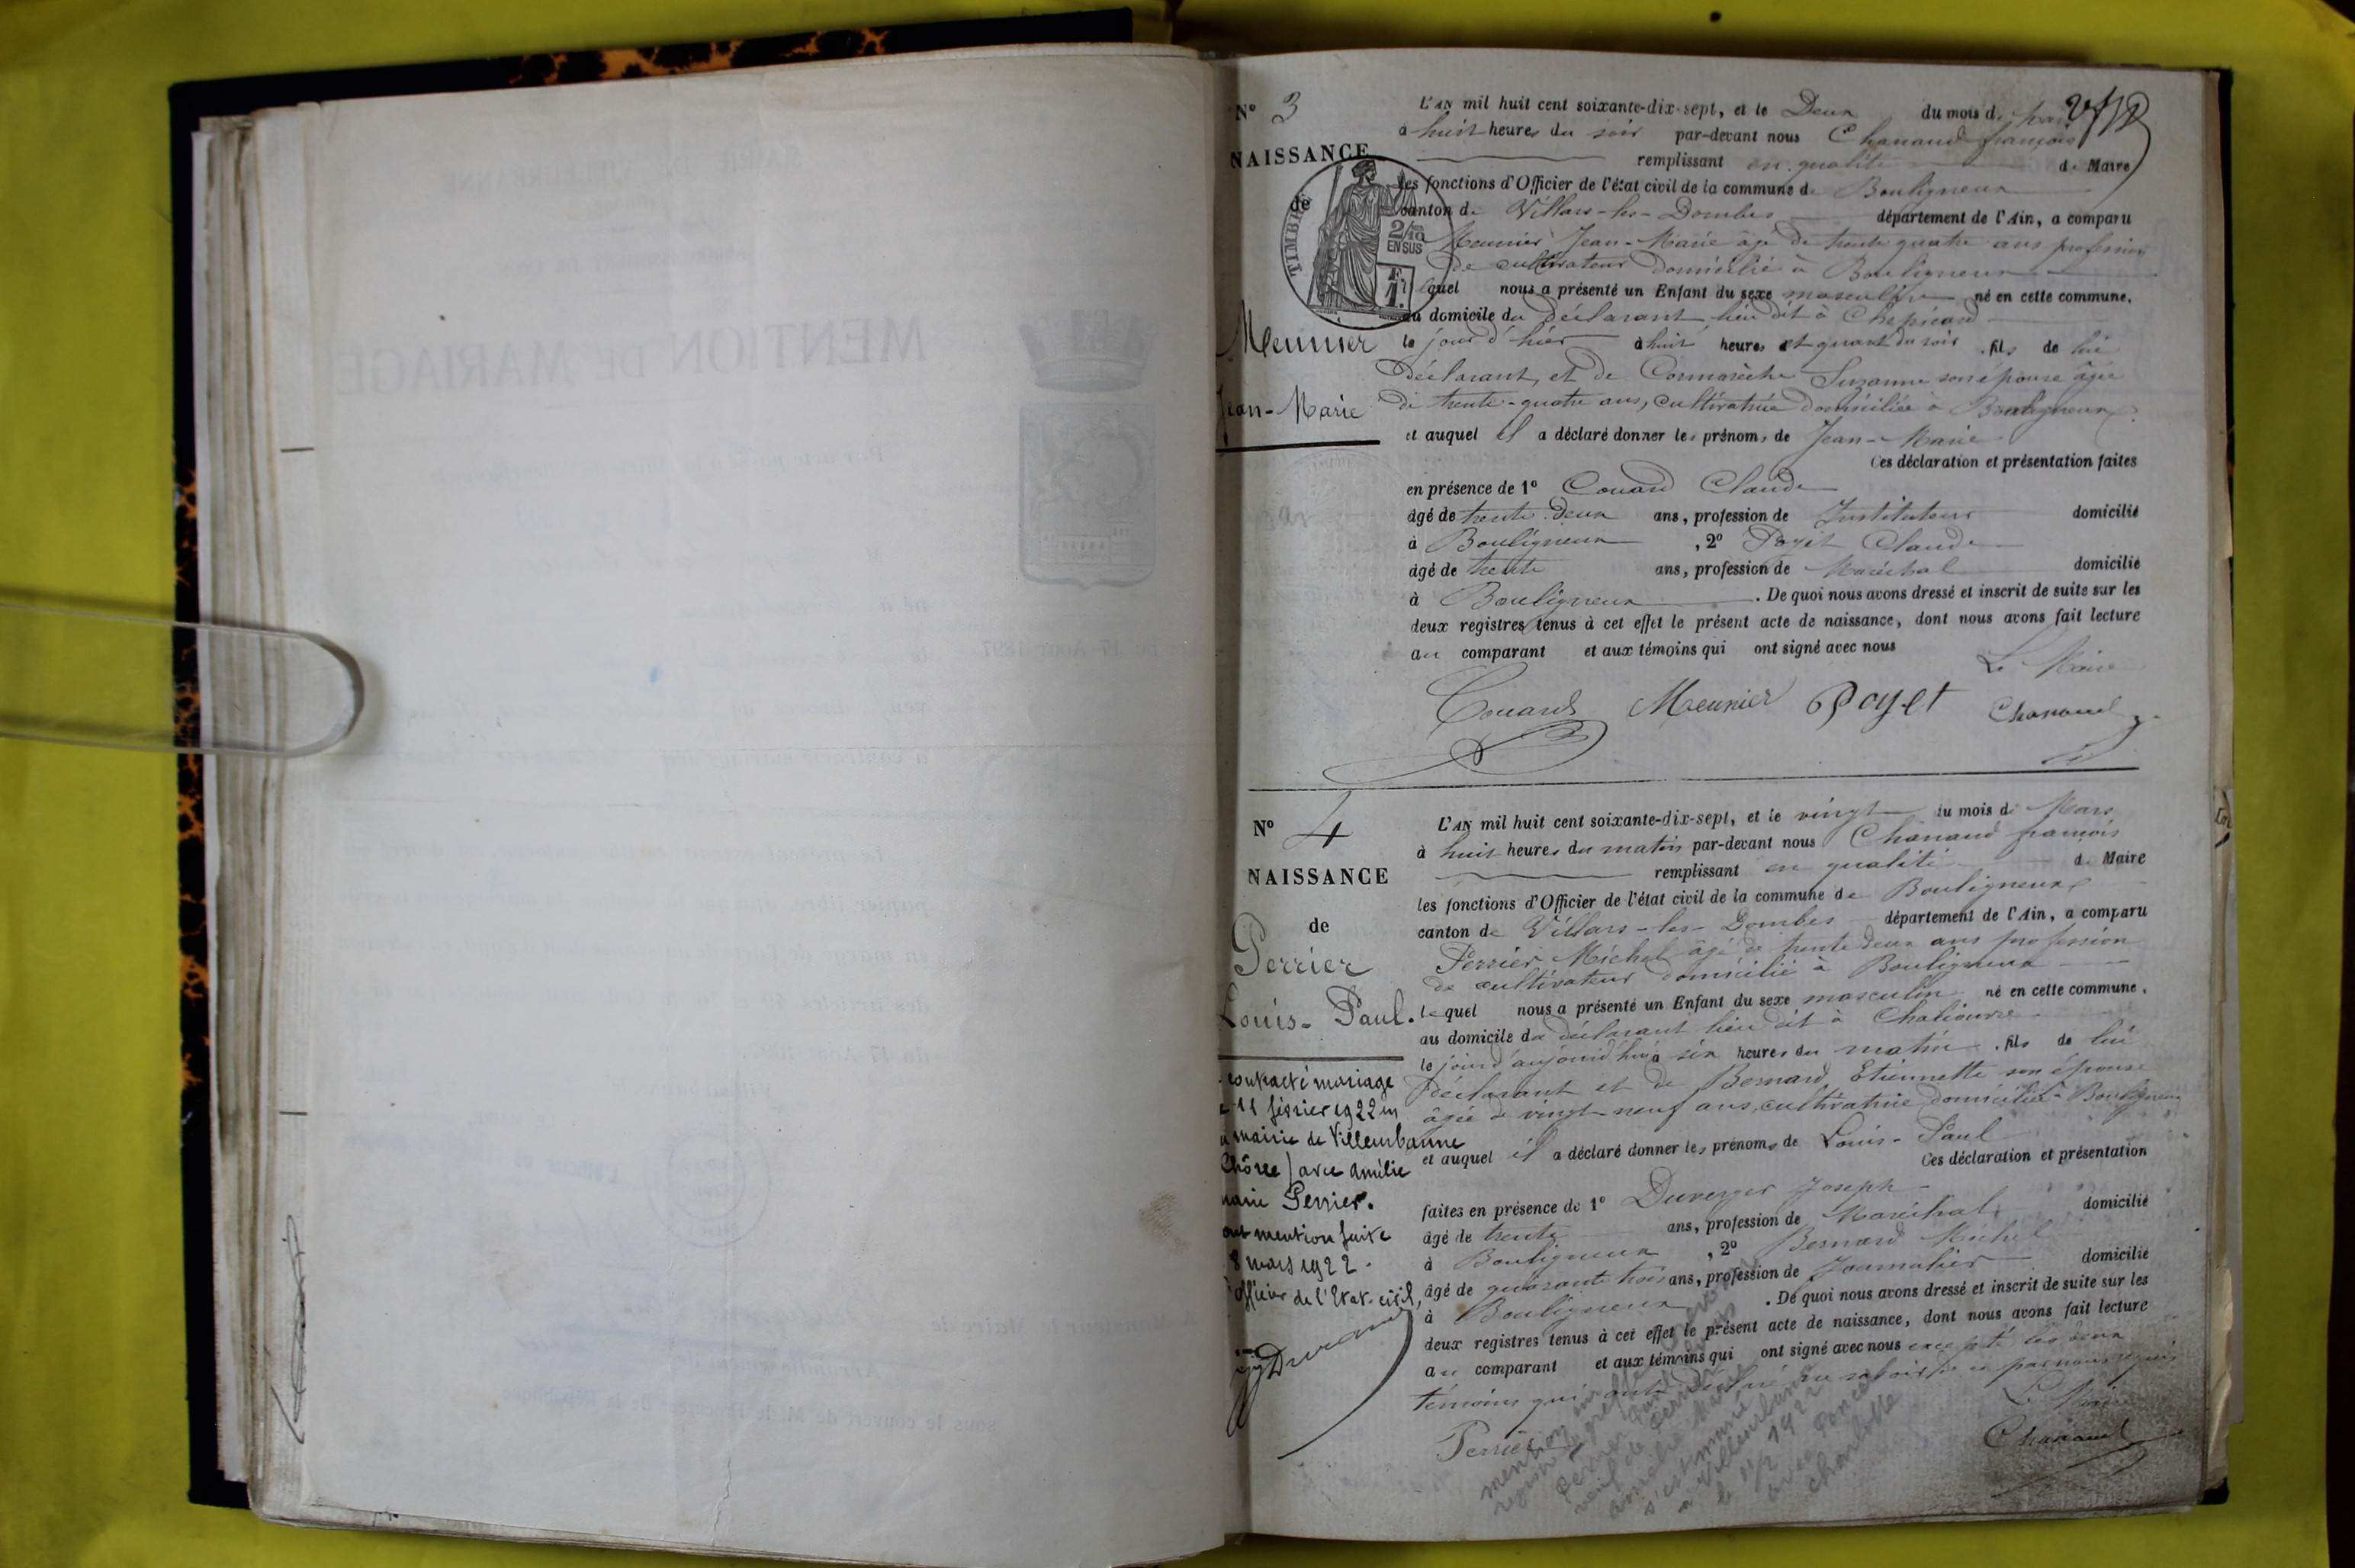 MENTION DE MARIAGE
N° 3
NAISSANCE
de
Meunier
Jean-Marie
TIMBRE
2/10
EN SUS
L'AN mil huit cent soixante-dix-sept, et le Deux du mois de
à huit heures du soir par-devant nous Chanaud françois
remplissant en qualité de Maire
les fonctions d'Officier de l'état civil de la commune de Bouligneux
canton de Villars-les-Dombes département de l'Ain, a comparu
Meunier Jean-Marie âgé de trente quatre ans profession
de cultivateur domicilié à Bouligneux
lequel nous a présenté un Enfant du sexe masculin né en cette commune,
au domicile du déclarant lieu dit à
le jour d'hier à huit heures et quart du soir, fils de lui
déclarant, et de Cormorèche Suzanne son épouse âgée
de trente-quatre ans, cultivatrice domiciliée à Bouligneux
et auquel il a déclaré donner les prénoms de Jean-Marie
Ces déclaration et présentation faites
en présence de 1° Couard Claude
âgé de trente deux ans, profession de Instituteur domicilié
à Bouligneux, 2° Poyet Claude
âgé de trente ans, profession de Maréchal domicilié
à Bouligneux. De quoi nous avons dressé et inscrit de suite sur les
deux registres tenus à cet effet le présent acte de naissance, dont nous avons fait lecture
au comparant et aux témoins qui ont signé avec nous
Le Maire
Couard Meunier Poyet Chanaud
N° 4
NAISSANCE
de
Perrier
Louis-Paul.
contracté mariage
11 février 1922 en
mairie de Villeurbanne
(Rhône) avec Amélie
Marie Perrier.
dont mention faite
8 mars 1922.
l'officier de l'Etat-civil,
L'AN mil huit cent soixante-dix-sept, et le vingt du mois de Mars
à huit heures du matin par-devant nous Chanaud françois
remplissant en qualité de Maire
les fonctions d'Officier de l'état civil de la commune de Bouligneux
canton de Villars-les-Dombes département de l'Ain, a comparu
Perrier Michel âgé de trente deux ans profession
de cultivateur domicilié à Bouligneux
lequel nous a présenté un Enfant du sexe masculin né en cette commune,
au domicile du déclarant lieu dit à
le jour d'aujourd'hui à six heures du matin, fils de lui
déclarant et de Bernard Etiennette son épouse
âgée de vingt-neuf ans, cultivatrice domiciliée à Bouligneux
et auquel il a déclaré donner les prénoms de Louis-Paul
Ces déclaration et présentation
faites en présence de 1° Duverger Joseph
âgé de trente ans, profession de Maréchal domicilié
à Bouligneux, 2° Bernard Michel
âgé de quarante trois ans, profession de Journalier domicilié
à Bouligneux. De quoi nous avons dressé et inscrit de suite sur les
deux registres tenus à cet effet le présent acte de naissance, dont nous avons fait lecture
au comparant et aux témoins qui ont signé avec nous excepté les deux
témoins qui ont déclaré ne savoir de ce par nous requis
Le Maire
Perrier
Chanaud
mention
Perrier
s'est marié
à Villeurbanne
le 11/2 1922
avec
Charlotte